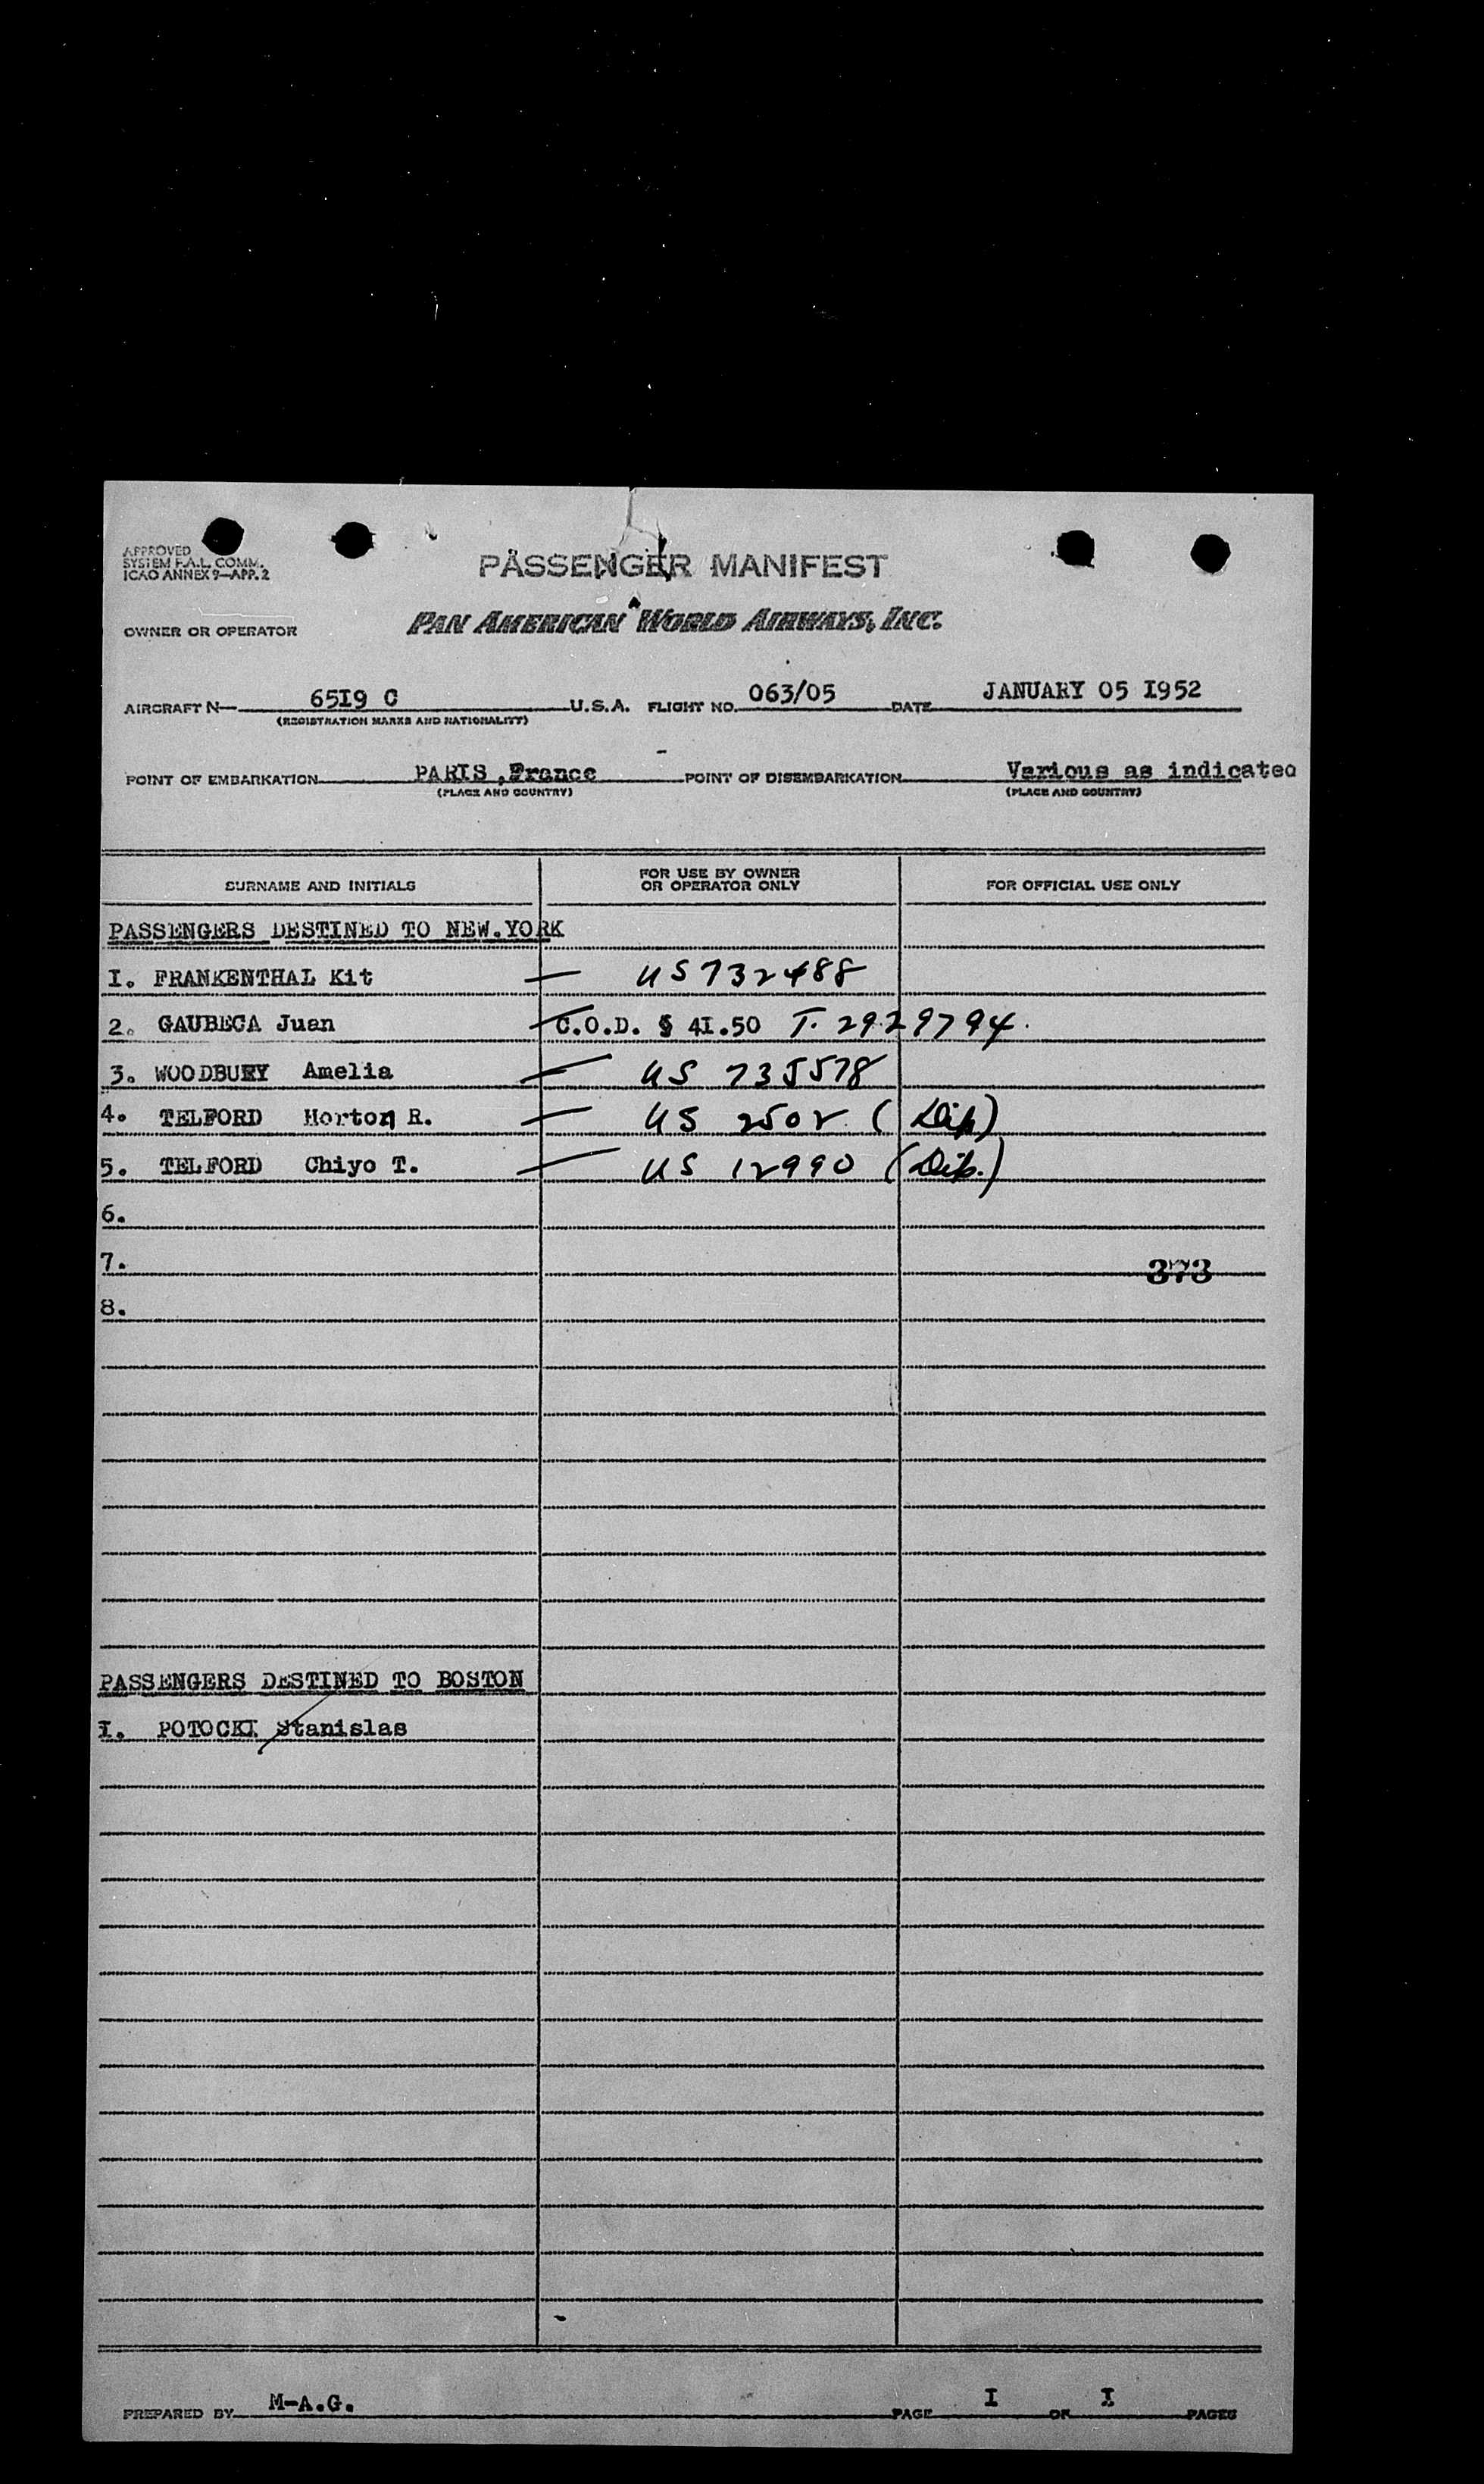 APPROVED
SYSTEM F.A.L. COMM.
ICAO ANNEX 9—APP. 2
PASSENGER MANIFEST
OWNER OR OPERATOR PAN AMERICAN WORLD AIRWAYS, INC.
AIRCRAFT N— 65I9 C U.S.A. FLIGHT NO. 063/05 DATE JANUARY 05 I952
(REGISTRATION MARKS AND NATIONALITY)
POINT OF EMBARKATION PARIS ,France POINT OF DISEMBARKATION Various as indicated
(PLACE AND COUNTRY) (PLACE AND COUNTRY)
SURNAME AND INITIALS FOR USE BY OWNER OR OPERATOR ONLY FOR OFFICIAL USE ONLY
PASSENGERS DESTINED TO NEW.YORK
I. FRANKENTHAL Kit — US 732488
2. GAUBECA Juan — C.O.D. $ 4I.50 T. 2929794.
3. WOODBURY Amelia — US 735578
4. TELFORD Horton R. — US 2502 (Dip)
5. TELFORD Chiyo T. — US 12990 (Dip.)
6.
7.
373
8.
PASSENGERS DESTINED TO BOSTON
I. POTOCKI Stanislas
PREPARED BY M-A.G. PAGE I OF I PAGES